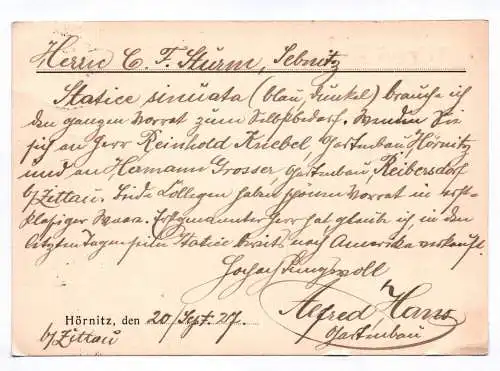 Herrn C. F. Sturm, Sebnitz
Statice sinuata (blau, dunkel) brauche ich
den ganzen Vorrat zum Selbstbedarf. Wenden Sie
sich an Herr Reinhold Knebel, Gartenbau Hörnitz
und an Hermann Grosser, Gartenbau, Reibersdorf
b/Zittau. Beide Collegen haben schönen Vorrat in erst-
klassiger Ware. Ersterer hat glaube ich, in den
letzten Tagen sein Statice bereits nach Amerika verkauft.
Hochachtungsvoll
Hörnitz, den 20/Sept. 27. Alfred Hans
b/Zittau Gartenbau